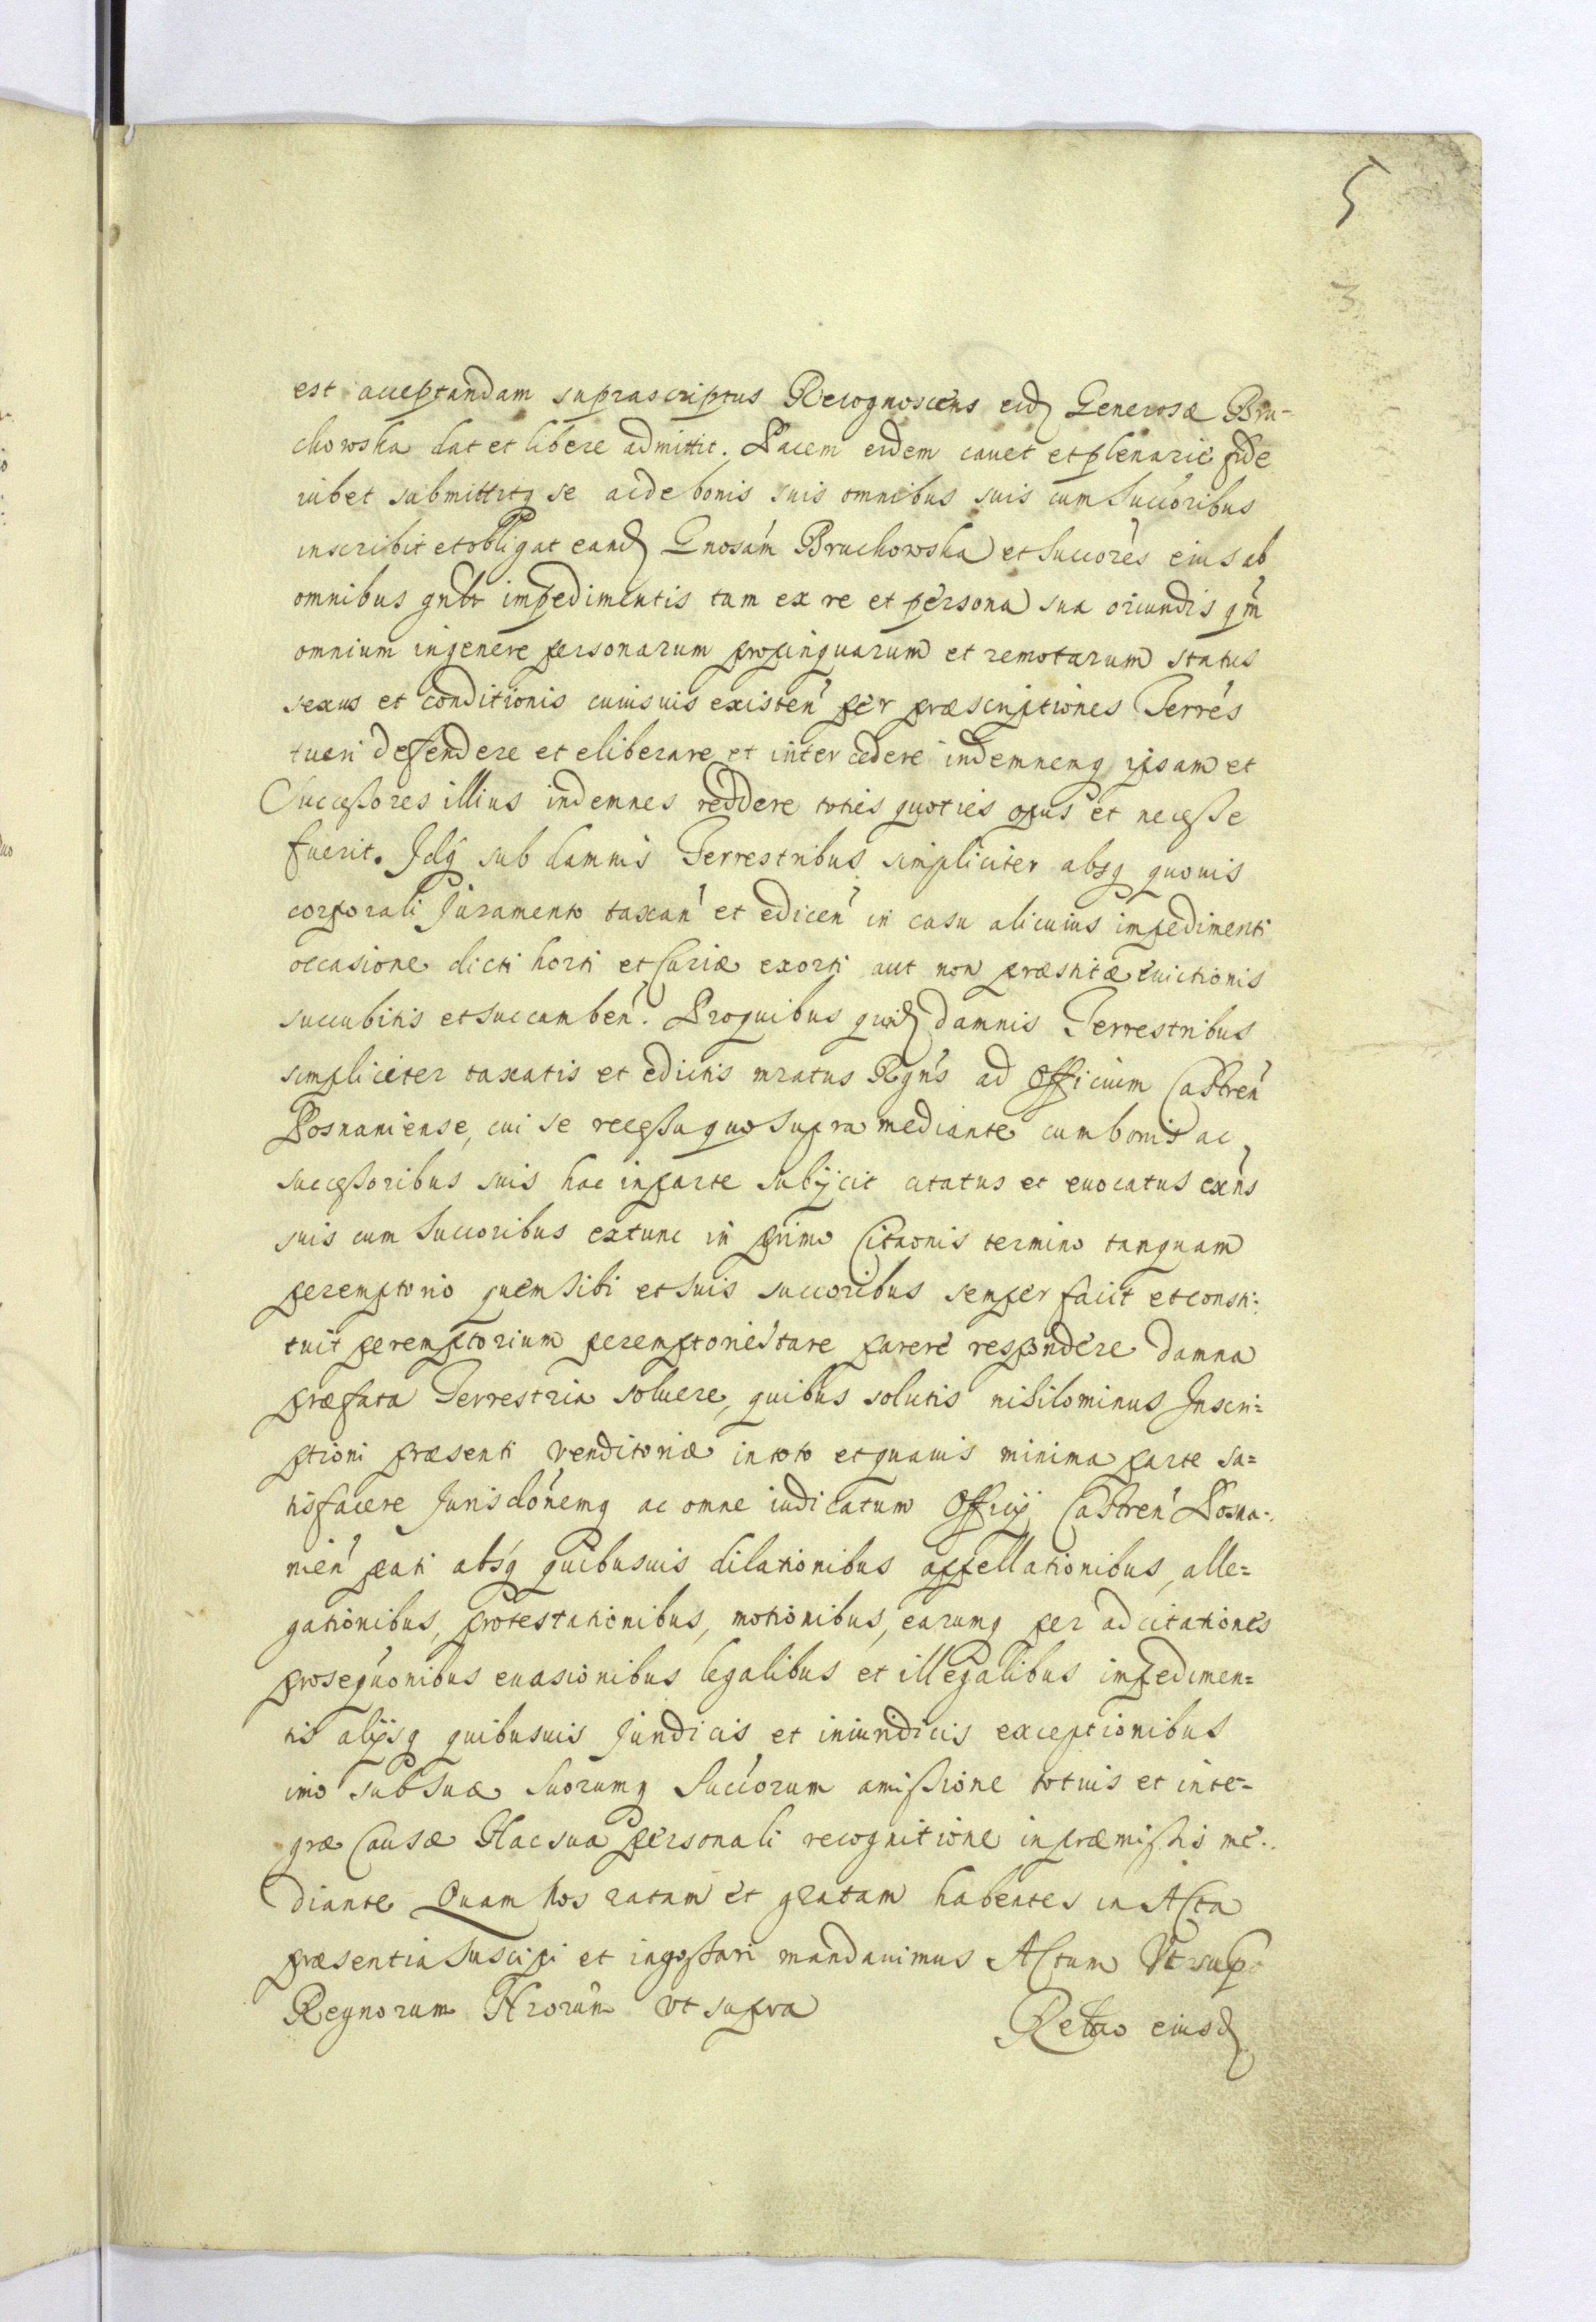 5
3
est acceptandam suprascriptus Recognoscens eidꝫ Generosæ Bru-
chowska dat et libere admittit. Pacem eidem cauet et plenarie fide
iubet submittitqꝫ se ac de bonis suis omnibus suis cum Succoribus
inscribit et obligat eandꝫ Gnosam Bruchowska et Succores eius ab
omnibus gnlr impedimentis tam ex re et persona sua oriundis qm
omnium in genere personarum propinquarum et remotarum status
sexus et conditionis cuiusuis existen per præscriptiones Terres
tueri defendere et eliberare et intercedere indemnemqꝫ ipsam et
Successores illius indemnes reddere toties quoties opus et necesse
fuerit. Idqꝫ sub damnis Terrestribus simpliciter absqꝫ quouis
corporali Juramento taxan et edicen in casu alicuius impedimenti
occasione dicti horti et Curiæ exorti aut non præstitæ euictionis
succubitis et succumben. Pro quibus quidꝫ damnis Terrestribus
simpliciter taxatis et edictis mratus Rgns ad Officium Castren
Posnaniense, cui se recessu quo supra mediante cum bonis ac
successoribus suis hac in parte subijcit citatus et euocatus exns
suis cum Succoribus extunc in primo Citaonis termino tanquam
peremptorio quem sibi et suis succoribus semper facit et consti:
tuit peremptorium peremptorie stare parere respondere damna
præfata Terrestria soluere, quibus solutis nihilominus Inscri=
ptioni præsenti venditoriæ in toto et quauis minima parte sa=
tisfacere Jurisdonemqꝫ ac omne iudicatum Officij Castren Posna:
nien pati absqꝫ quibusuis dilationibus appellationibus, alle=
gationibus, protestationibus, motionibus, earumqꝫ per adcitationes
prosequonibus euasionibus legalibus et illegalibus impedimen=
tis alijsqꝫ quibusuis Juridicis et iniuridicis exceptionibus
imo sub suæ Suorumqꝫ Succorum amissione totius et inte=
græ Causæ Hac sua personali recognitione in præmissis me:
diante Quam Nos ratam et gratam habentes in Acta
præsentia suscipi et ingossari mandauimus Actum Vt sup
Regnorum Nrorum vt supra
Retao eiusdꝫ